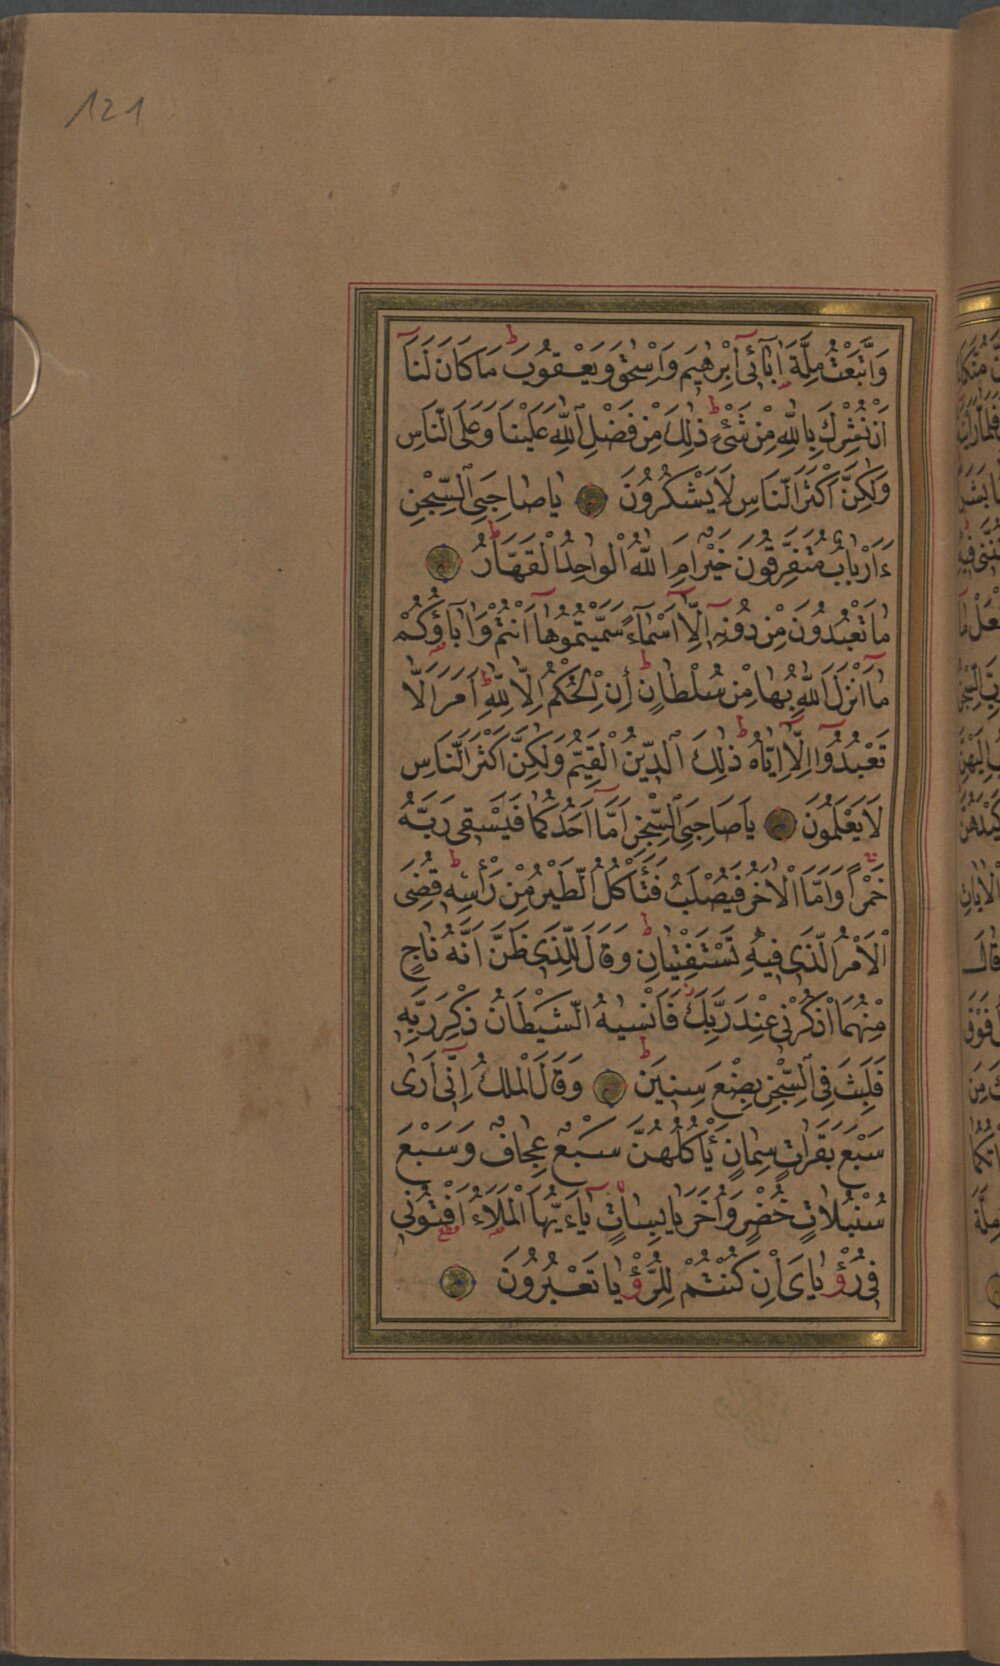 121
وَاتَّبَعْتُ مِلَّةَ اٰبَٓائ۪ٓي اِبْرٰه۪يمَ وَاِسْحٰقَ وَيَعْقُوبَ ط مَا كَانَ لَنَٓا
اَنْ نُشْرِكَ بِاللّٰهِ مِنْ شَيْءٍ ط ذٰلِكَ مِنْ فَضْلِ اللّٰهِ عَلَيْنَا وَعَلَى النَّاسِ
وَلٰكِنَّ اَكْثَرَ النَّاسِ لَا يَشْكُرُونَ يَاصَاحِبَيِ السِّجْنِ
ءَاَرْبَابٌ مُتَفَرِّقُونَ خَيْرٌ اَمِ اللّٰهُ الْوَاحِدُ الْقَهَّارُ ط
مَا تَعْبُدُونَ مِنْ دُونِه۪ٓ اِلَّٓا اَسْمَٓاءً سَمَّيْتُمُوهَٓا اَنْتُمْ وَاٰبَٓاؤُكُمْ
مَٓا اَنْزَلَ اللّٰهُ بِهَا مِنْ سُلْطَانٍ ط اِنِ الْحُكْمُ اِلَّا لِلّٰهِ ط اَمَرَ اَلَّا
تَعْبُدُٓوا اِلَّٓا اِيَّاهُ ط ذٰلِكَ الدّ۪ينُ الْقَيِّمُ وَلٰكِنَّ اَكْثَرَ النَّاسِ
لَا يَعْلَمُونَ يَاصَاحِبَيِ السِّجْنِ اَمَّٓا اَحَدُكُمَا فَيَسْق۪ي رَبَّهُ
خَمْراً وَاَمَّا الْاٰخَرُ فَيُصْلَبُ فَتَأْكُلُ الطَّيْرُ مِنْ رَأْسِه۪ ط قُضِيَ
الْاَمْرُ الَّذ۪ي ف۪يهِ تَسْتَفْتِيَانِ ط وَقَالَ لِلَّذ۪ي ظَنَّ اَنَّهُ نَاجٍ
مِنْهُمَا اذْكُرْن۪ي عِنْدَ رَبِّكَ فَاَنْسٰيهُ الشَّيْطَانُ ذِكْرَ رَبِّه۪
فَلَبِثَ فِي السِّجْنِ بِضْعَ سِن۪ينَ ط وَقَالَ الْمَلِكُ اِنّ۪ٓي اَرٰى
سَبْعَ بَقَرَاتٍ سِمَانٍ يَأْكُلُهُنَّ سَبْعٌ عِجَافٌ وَسَبْعَ
سُنْبُلَاتٍ خُضْرٍ وَاُخَرَ يَابِسَاتٍ ط يَٓاءَيُّهَا الْمَلَاُ اَفْتُون۪ي
ف۪ي رُؤْيَايَ اِنْ كُنْتُمْ لِلرُّؤْيَا تَعْبُرُونَ